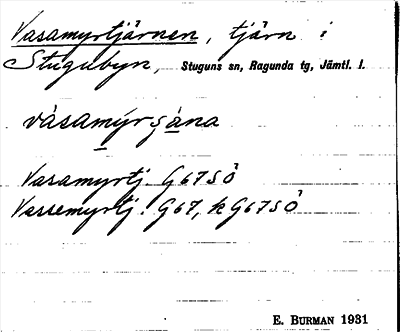 Vasamyrtjärnen, tjärn i
Stugubyn, Stuguns sn, Ragunda tg, Jämtl. l.
våsamyrşäna
Vasamyrtj. G67SÖ
Vassemyrtj. G67, k G67SÖ
E. BURMAN 1931